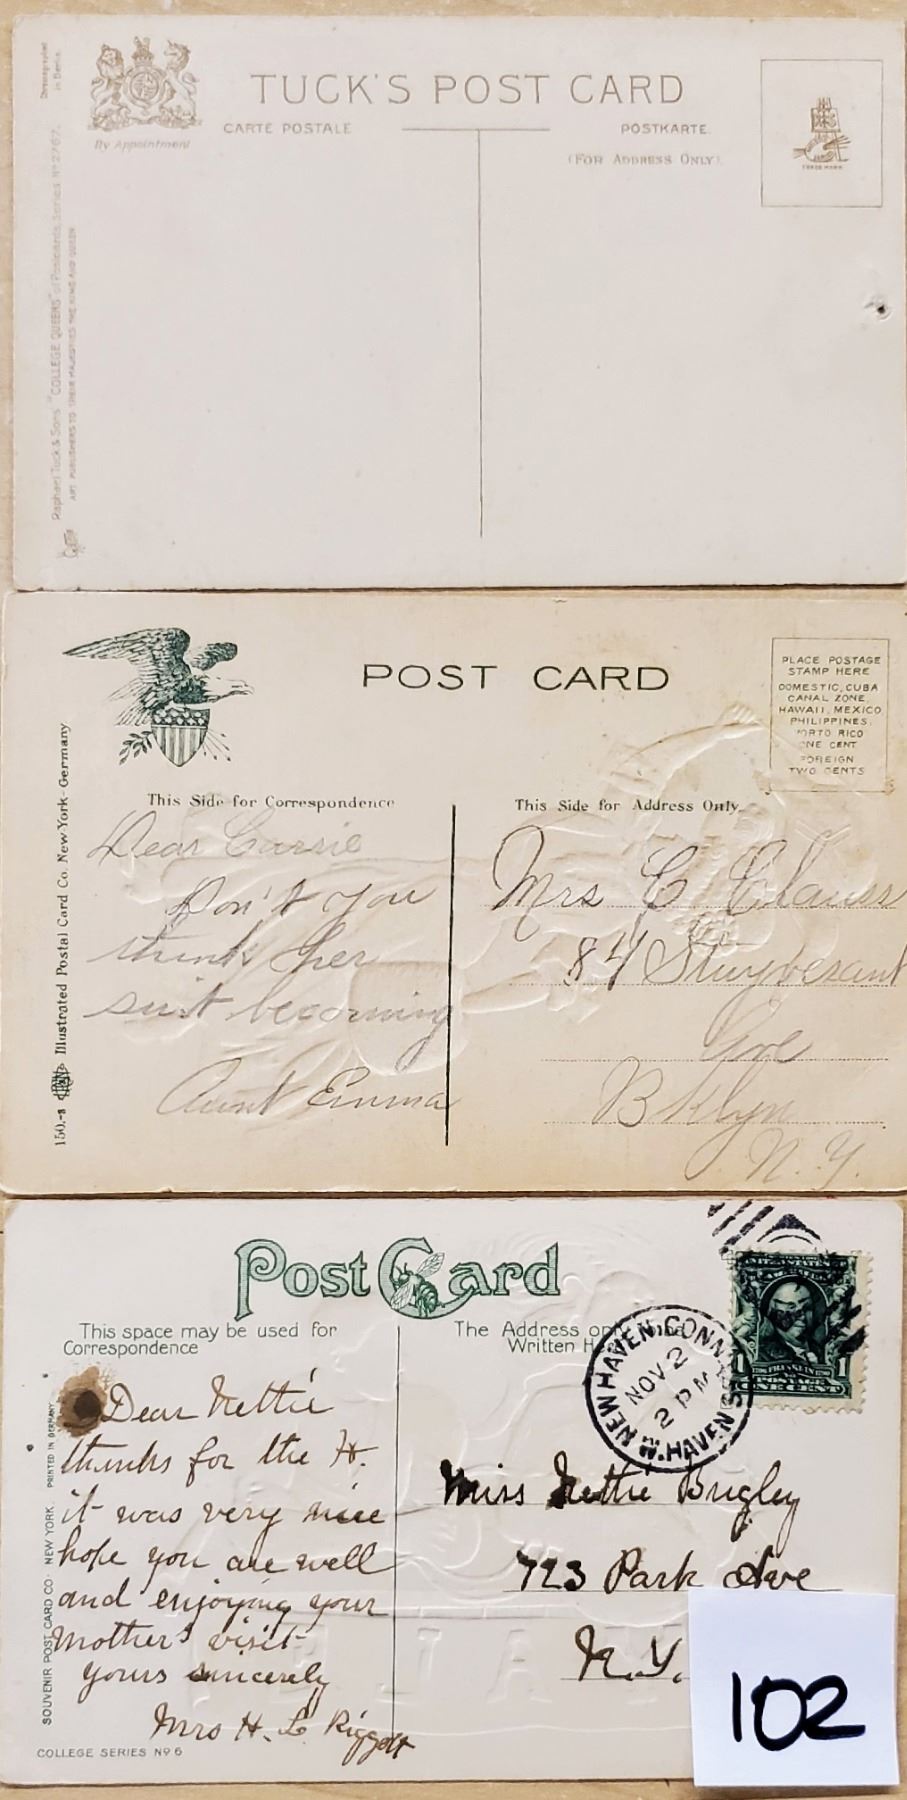 Chromographed
in Berlin.
By Appointment
TUCK'S POST CARD
CARTE POSTALE
POSTKARTE.
(FOR ADDRESS ONLY).
TRADE MARK
Raphael Tuck & Sons' "COLLEGE QUEENS" of Postcards, Series Nº 2767.
ART PUBLISHERS TO THEIR MAJESTIES THE KING AND QUEEN
POST CARD
PLACE POSTAGE
STAMP HERE
DOMESTIC, CUBA
CANAL ZONE
HAWAII, MEXICO
PHILIPPINES,
PORTO RICO
ONE CENT
FOREIGN
TWO CENTS
This Side for Correspondence
This Side for Address Only.
150.-8 Illustrated Postal Card Co. New-York-Germany
Dear Carrie
Don't you
think her
suit becoming
Aunt Emma
Mrs C Clauss
84 Stuyvesant
Ave
Bklyn
N. Y.
Post Card
This space may be used for
Correspondence
The Address only
Written
NEW HAVEN, CONN.
NOV 2
2 PM
W. HAVEN
1 FRANKLIN 1
ONE CENT
SOUVENIR POST CARD CO. NEW YORK. PRINTED IN GERMANY
Dear Nettie
thanks for the H.
it was very nice
hope you are well
and enjoying your
Mother's visit
yours sincerely
Mrs H. L.
Miss Nettie Brigley
723 Park Ave
N.Y.
YALE
COLLEGE SERIES Nº 6
102